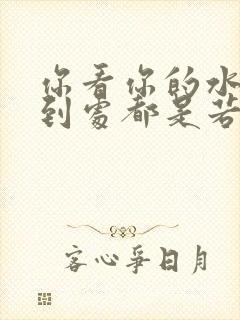 你看你的水
到處都是若
客心爭日月